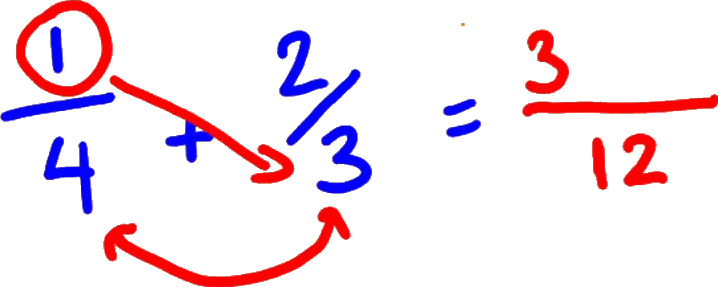 1/4 + 2/3 = 3/12